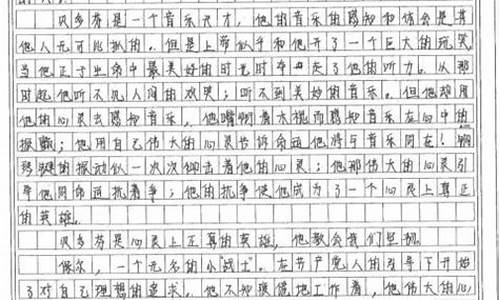 贝多芬是一个音乐天才，他的音乐的感知和体会是其
他人无可比拟的。但是上帝似乎和他开了一个巨大的玩笑
当他正于生命中最美好的时光时夺走了他的听力。从那
时起他听不见人间的欢笑；听不到美妙的音乐。但他却用
他的心灵去感知音乐，他嘴啣着木棍而感知音乐在心中的
振颤；他用自己伟大的心灵告诉命运他将与音乐同在！钢
琴键的振动似一次次叩击着他的心灵；他那伟大的心灵引
导他同命运抗着争；他的抗争使他成为了一个心灵上真正
的英雄。
贝多芬是心灵上正真的英雄，他教会我们坚韧。
保尔，一个无名的小"战士"。在共产党人的引导下开始
了对自己理想的追求。他不知疲倦地工作着，他伟大的心